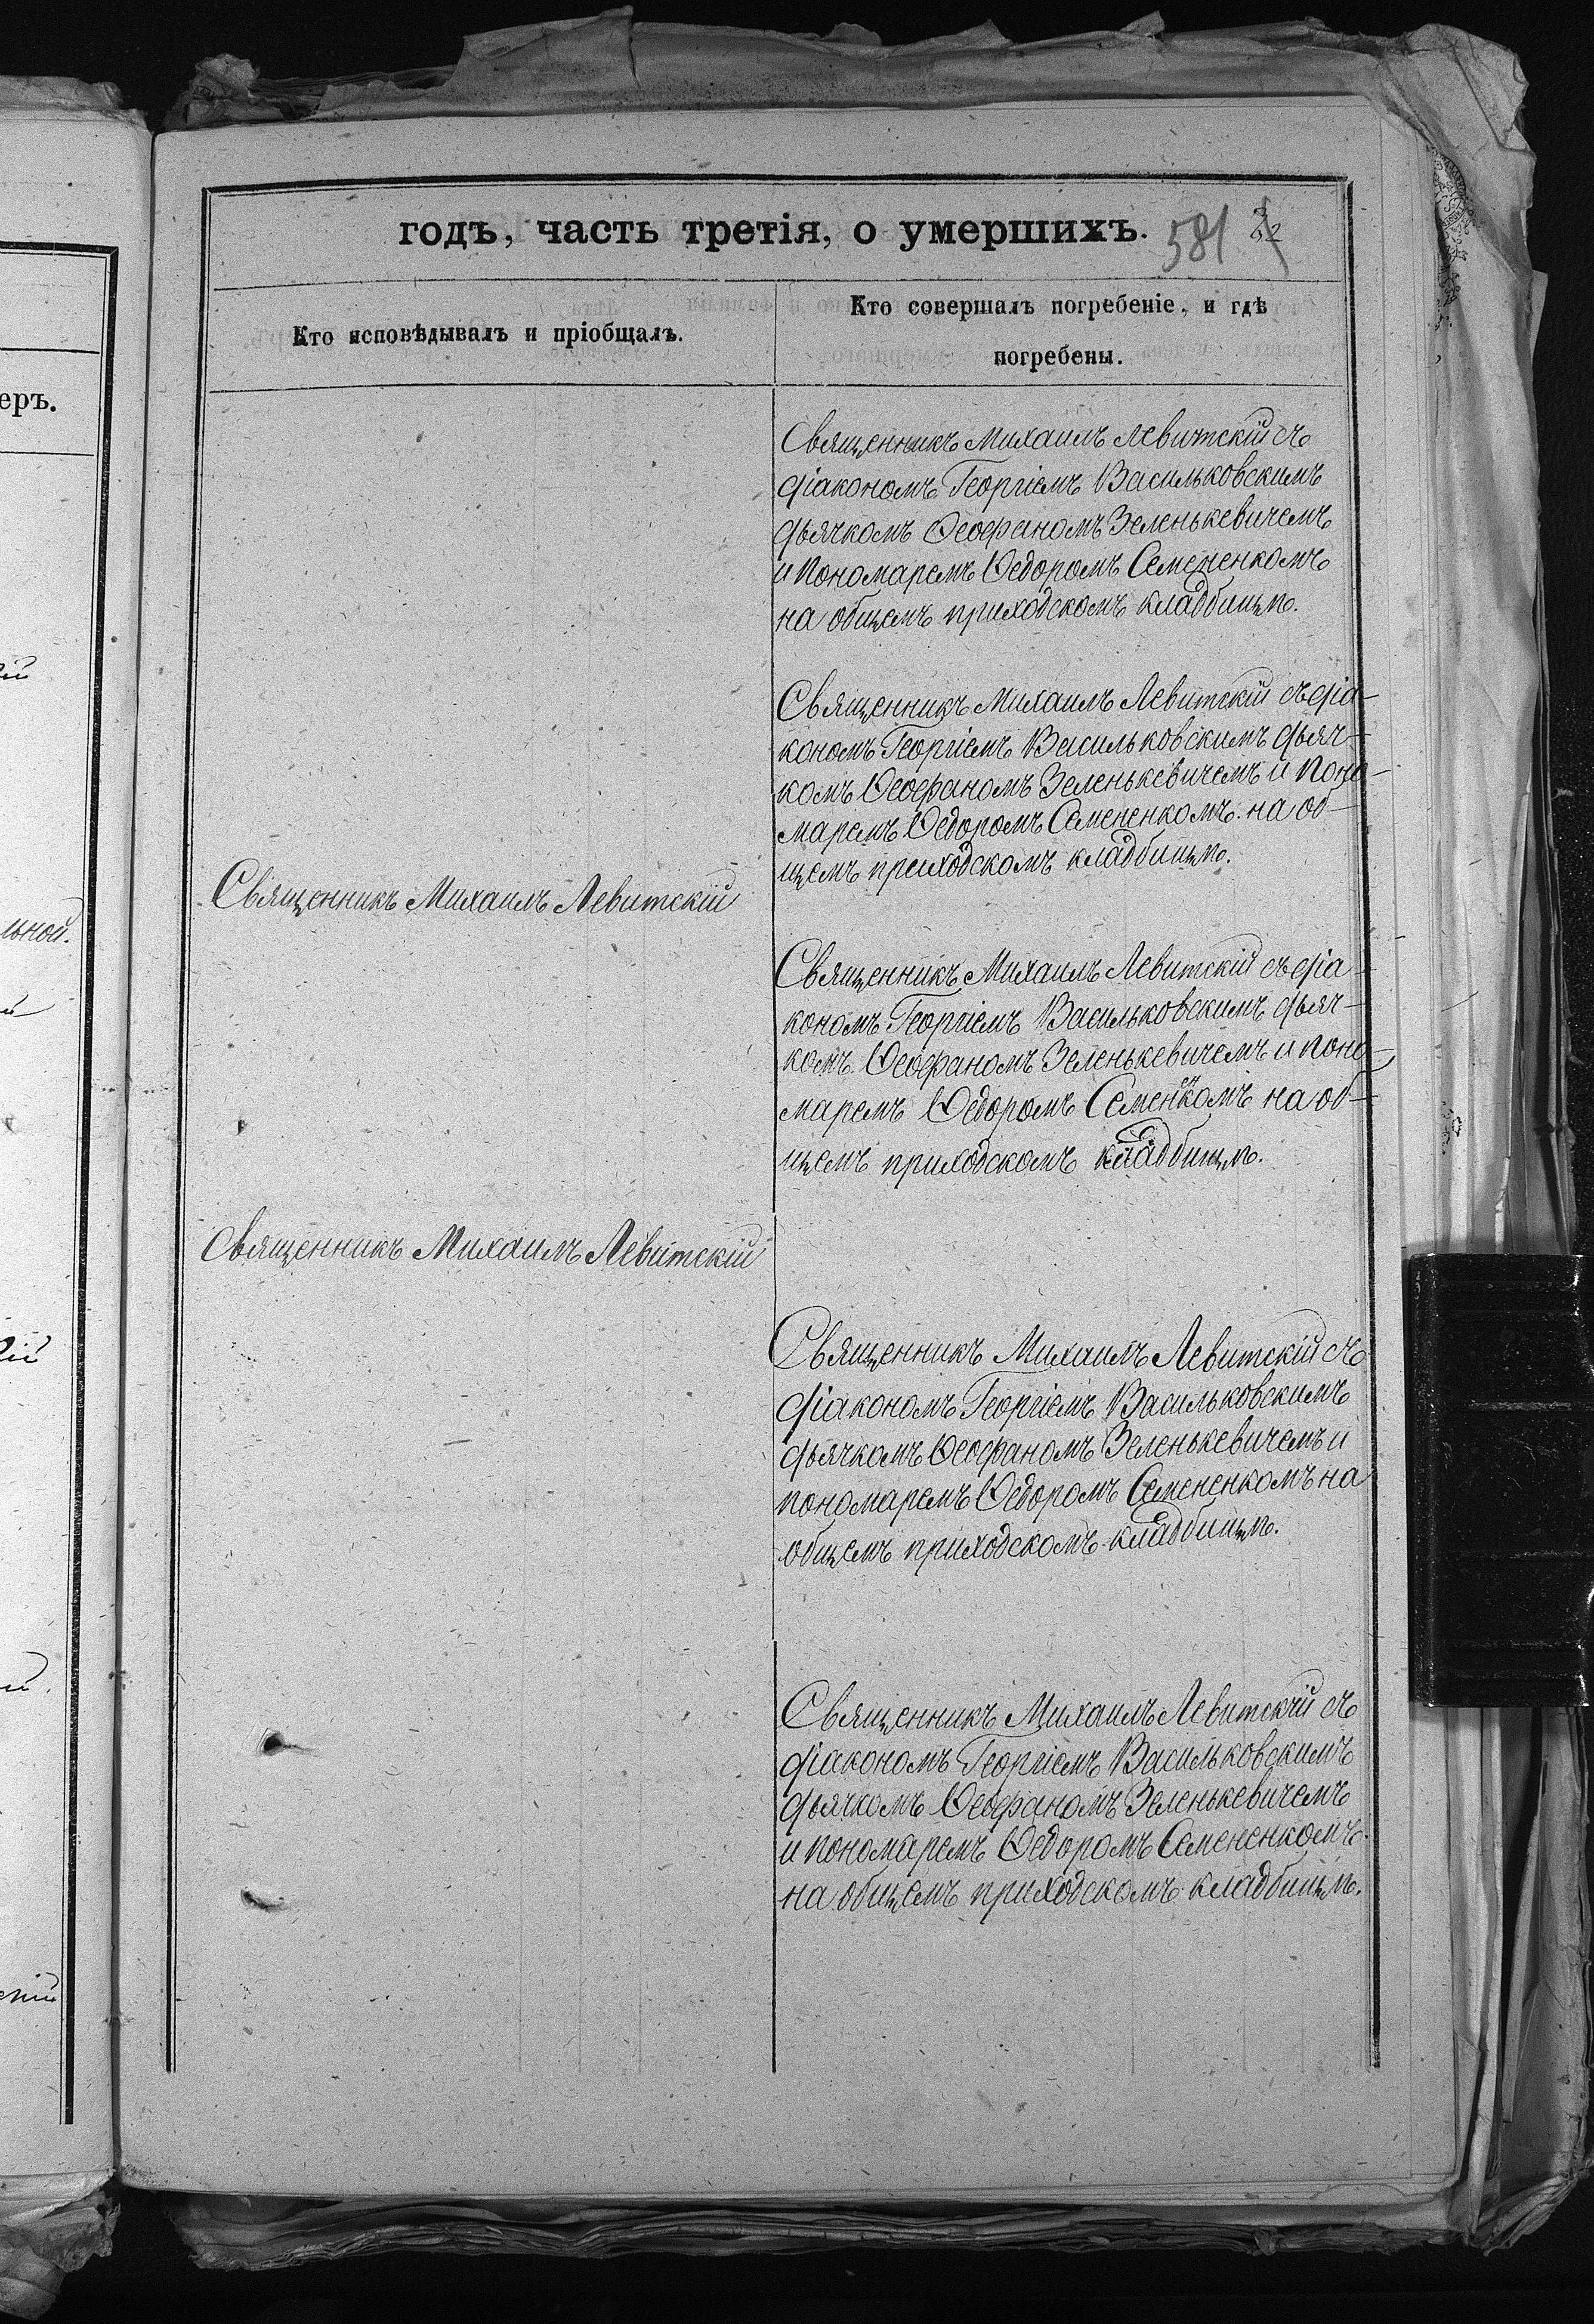 годъ, часть третія, о умершихъ.
581
Кто исповѣдывалъ и пріобщалъ.
Кто совершалъ погребеніе, и гдѣ
погребены.
еръ.
Священникъ Михаилъ Левитскій съ
діакономъ Георгіемъ Васильковскимъ
дьячкомъ Ѳеофаномъ Зеленькевичемъ
и пономаремъ Ѳедоромъ Семененкомъ
на общемъ приходскомъ кладбищѣ.
Священникъ Михаилъ Левитскій съ діа-
кономъ Георгіемъ Васильковскимъ дьяч-
комъ Ѳеофаномъ Зеленькевичемъ и поно-
маремъ Ѳедоромъ Семененкомъ на об-
щемъ приходскомъ кладбищѣ.
Священникъ Михаилъ Левитскій
льной.
Священникъ Михаилъ Левитскій съ діа-
кономъ Георгіемъ Васильковскимъ дьяч-
комъ Ѳеофаномъ Зеленькевичемъ и поно-
маремъ Ѳедоромъ Семененкомъ на об-
щемъ приходскомъ кладбищѣ.
Священникъ Михаилъ Левитскій
Священникъ Михаилъ Левитскій съ
діакономъ Георгіемъ Васильковскимъ
дьячкомъ Ѳеофаномъ Зеленькевичемъ и
пономаремъ Ѳедоромъ Семененкомъ на
общемъ приходскомъ кладбищѣ.
Священникъ Михаилъ Левитскій съ
діакономъ Георгіемъ Васильковскимъ
дьячкомъ Ѳеофаномъ Зеленькевичемъ
и пономаремъ Ѳедоромъ Семененкомъ
на общемъ приходскомъ кладбищѣ.